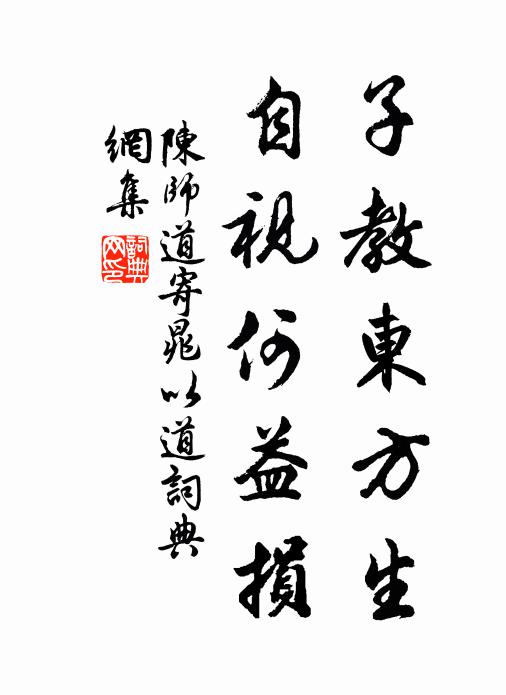 子教東方生
自視何益損
陳師道寄晁以道詞典
網集
詞典網印